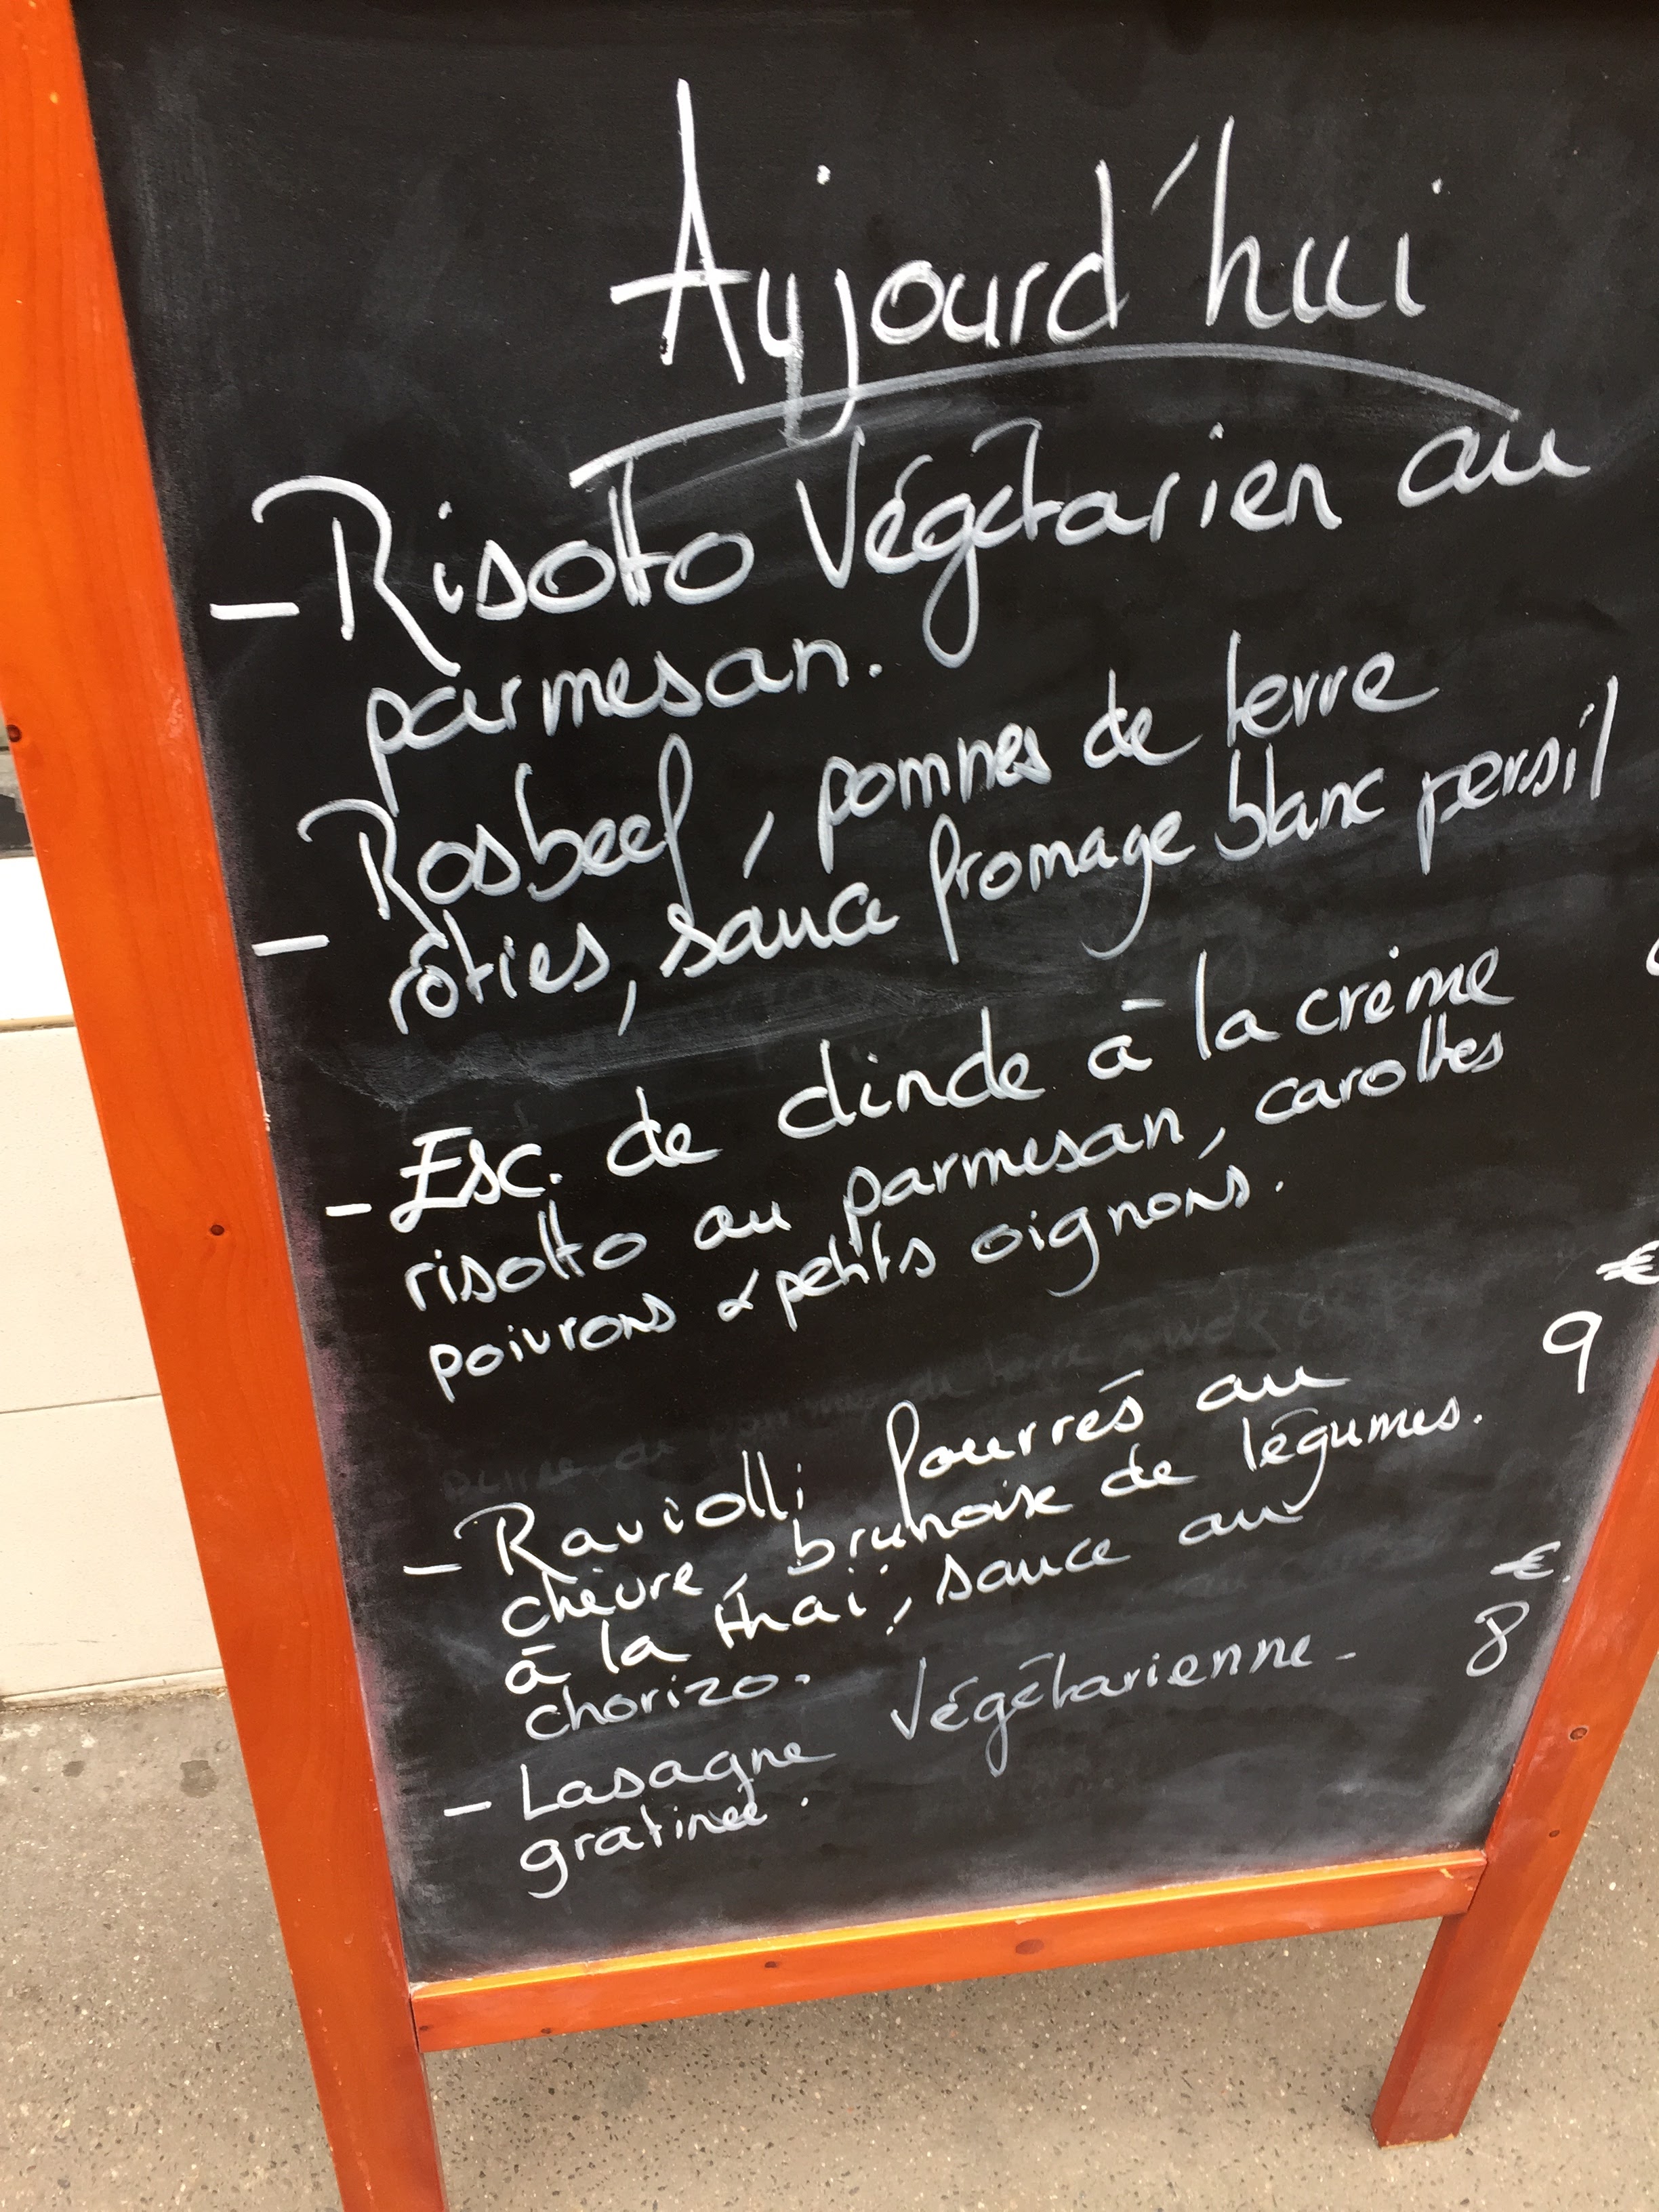 Aujourd'hui
- Risotto Végétarien au
parmesan.
- Rosbeef, pommes de terre
rôties, sauce fromage blanc persil
- Esc. de dinde à la crème
risotto au parmesan, carottes
poivrons & petits oignons.
- Raviolli fourrés au
chèvre, brunoise de légumes.
à la thaï, sauce au
chorizo.
€
9
- Lasagne Végétarienne -
gratinée.
€
8